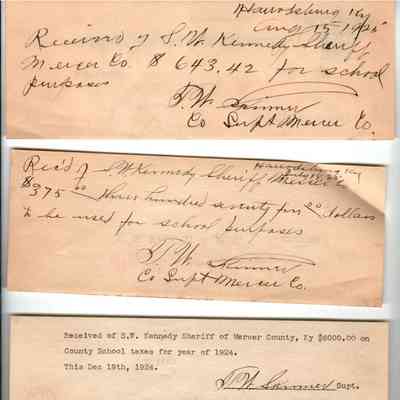 Harrodsburg Ky
Aug 15 1925
Received of S.W. Kennedy Sheriff
Mercer Co. $643.42 for school
purposes
T.W. Skinner
Co Supt Mercer Co.
Rec'd of S W Kennedy Sheriff Mercer Co
Harrodsburg, Ky
$375 00 three hundred seventy five 00 dollars
to be used for school purposes
T.W. Skinner
Co Supt Mercer Co.
Received of S.W. Kennedy Sheriff of Mercer County, Ky $6000.00 on
County School taxes for year of 1924.
This Dec 19th, 1924.
T.W. Skinner Supt.